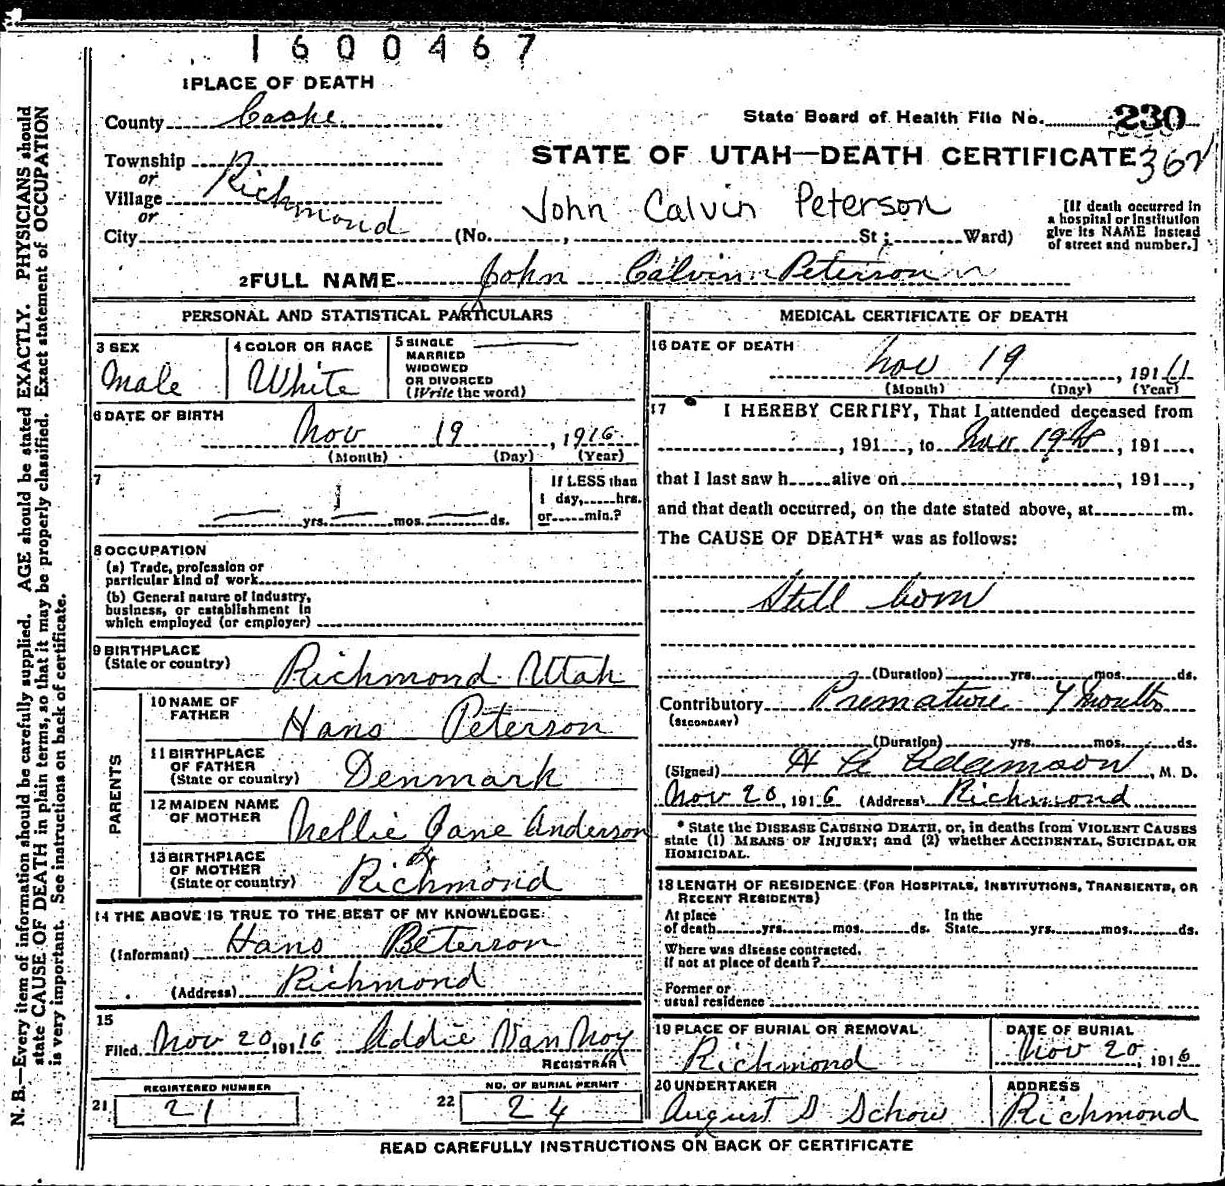 1600467
1 PLACE OF DEATH
County Cache
State Board of Health File No. 230
Township
or
Village Richmond
or
City (No. , St ; Ward)
STATE OF UTAH—DEATH CERTIFICATE 362
John Calvin Peterson
[If death occurred in
a hospital or institution
give its NAME instead
of street and number.]
2 FULL NAME John Calvin Peterson
PERSONAL AND STATISTICAL PARTICULARS
3 SEX
Male
4 COLOR OR RACE
White
5 SINGLE
MARRIED
WIDOWED
OR DIVORCED
(Write the word)
6 DATE OF BIRTH
Nov 19, 1916
(Month) (Day) (Year)
7
yrs. mos. ds.
If LESS than
1 day, hrs.
or min.?
8 OCCUPATION
(a) Trade, profession or
particular kind of work
(b) General nature of Industry,
business, or establishment in
which employed (or employer)
9 BIRTHPLACE
(State or country) Richmond Utah
PARENTS
10 NAME OF
FATHER Hans Peterson
11 BIRTHPLACE
OF FATHER
(State or country) Denmark
12 MAIDEN NAME
OF MOTHER Nellie Jane Anderson
13 BIRTHPLACE
OF MOTHER
(State or country) Richmond
14 THE ABOVE IS TRUE TO THE BEST OF MY KNOWLEDGE:
(Informant) Hans Peterson
(Address) Richmond
15
Filed Nov 20 191 16 Addie Van Noy
REGISTRAR
REGISTERED NUMBER
21 21
NO. OF BURIAL PERMIT
22 24
MEDICAL CERTIFICATE OF DEATH
16 DATE OF DEATH
Nov 19, 191
(Month) (Day) (Year)
17 I HEREBY CERTIFY, That I attended deceased from
, 191 , to Nov 19 , 191 ,
that I last saw h alive on , 191 ,
and that death occurred, on the date stated above, at m.
The CAUSE OF DEATH* was as follows:
Still born
(Duration) yrs. mos. ds.
Contributory Premature 7 months
(SECONDARY)
(Duration) yrs. mos. ds.
(Signed) Adamson, M. D.
Nov 20, 1916 (Address) Richmond
* State the DISEASE CAUSING DEATH, or, in deaths from VIOLENT CAUSES
state (1) MEANS OF INJURY; and (2) whether ACCIDENTAL, SUICIDAL OR
HOMICIDAL.
18 LENGTH OF RESIDENCE (FOR HOSPITALS, INSTITUTIONS, TRANSIENTS, OR
RECENT RESIDENTS)
At place
of death yrs. mos. ds.
In the
State yrs. mos. ds.
Where was disease contracted.
If not at place of death?
Former or
usual residence
19 PLACE OF BURIAL OR REMOVAL
Richmond
DATE OF BURIAL
Nov 20, 1916
20 UNDERTAKER
August S Schow
ADDRESS
Richmond
READ CAREFULLY INSTRUCTIONS ON BACK OF CERTIFICATE
N. B.—Every item of information should be carefully supplied. AGE should be stated EXACTLY. PHYSICIANS should
state CAUSE OF DEATH in plain terms, so that it may be properly classified. Exact statement of OCCUPATION
is very important. See instructions on back of certificate.